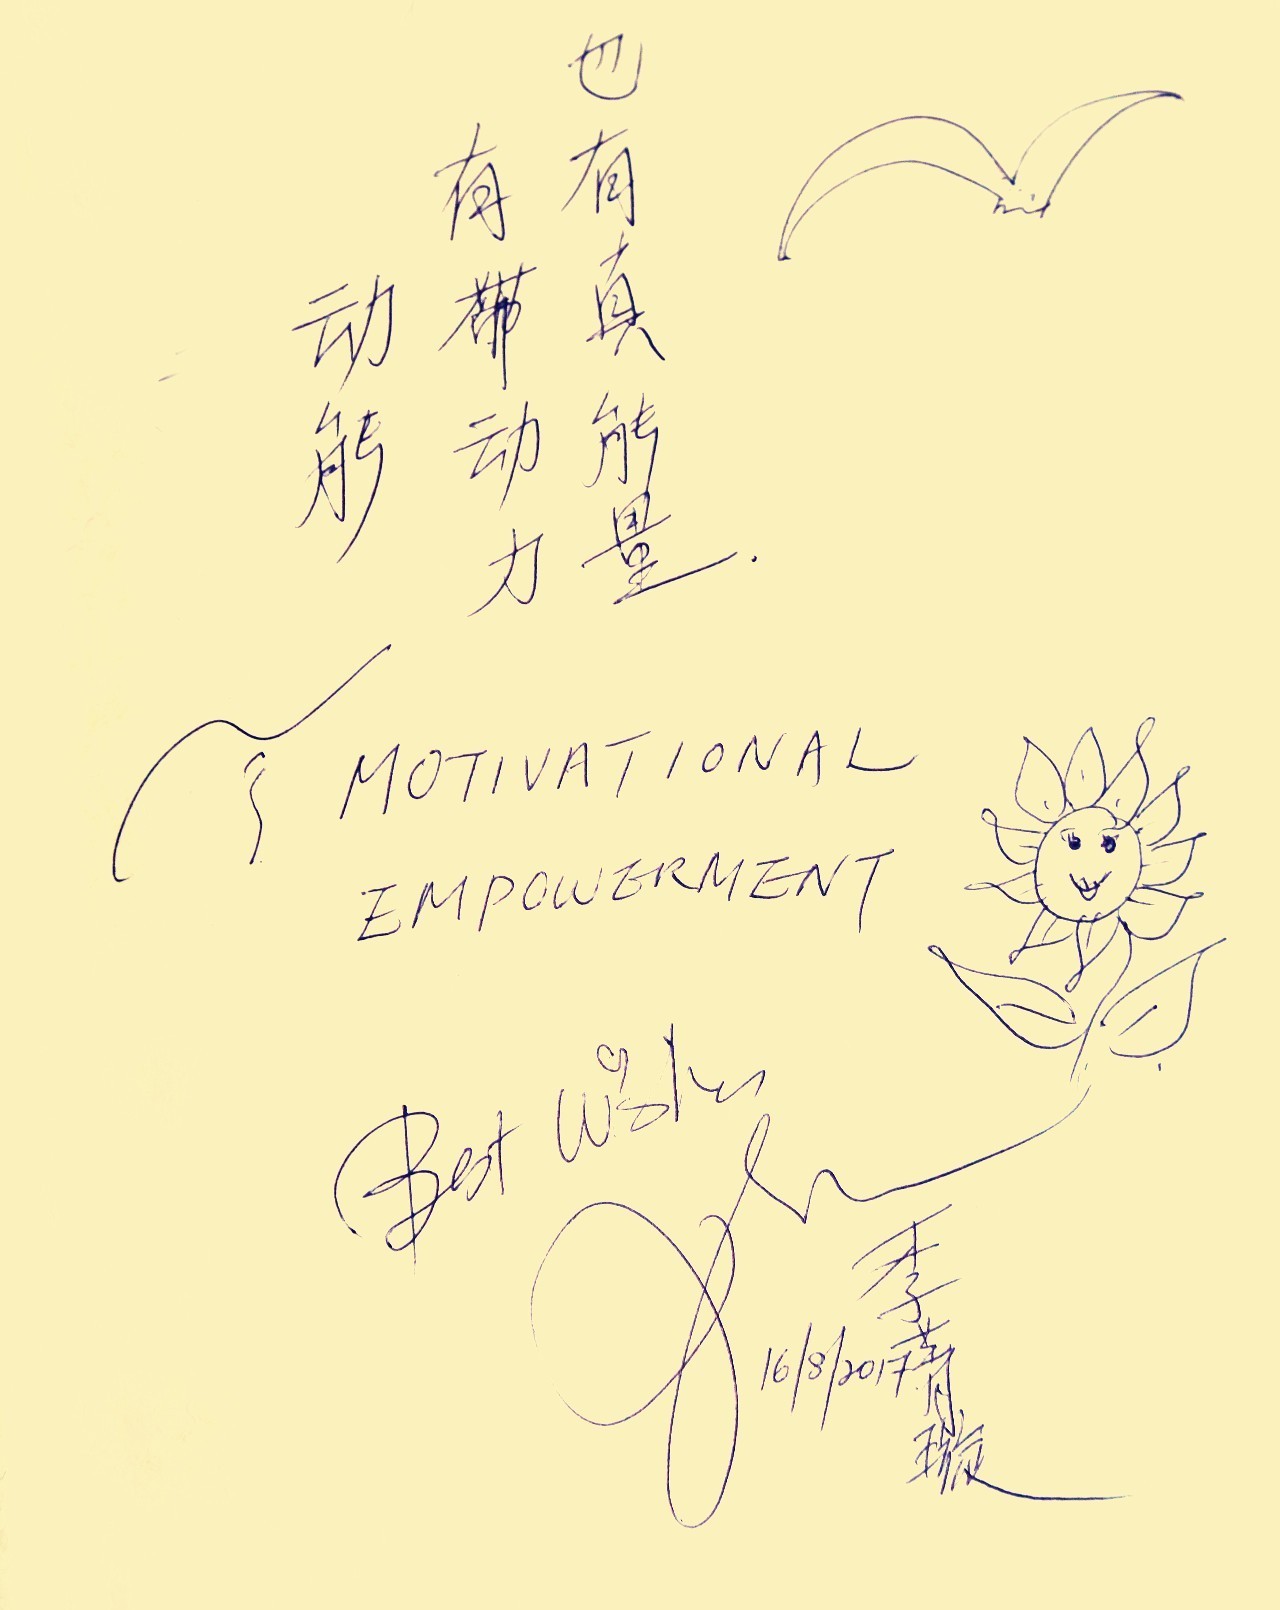 动能
有带动力
也有真能量.
MOTIVATIONAL
EMPOWERMENT
Best Wishes
16/8/2017
季菁璇